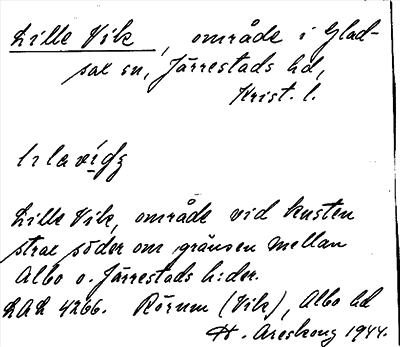 Lille Vik, område i Glad-
sax sn, Järrestads hd,
Krist. l.
Lille Vik, område vid kusten
strax söder om gränsen mellan
Albo o. Järrestads h:der.
LAL 4266. Rörum (Vik), Albo hd
H. Areskoug 1944.